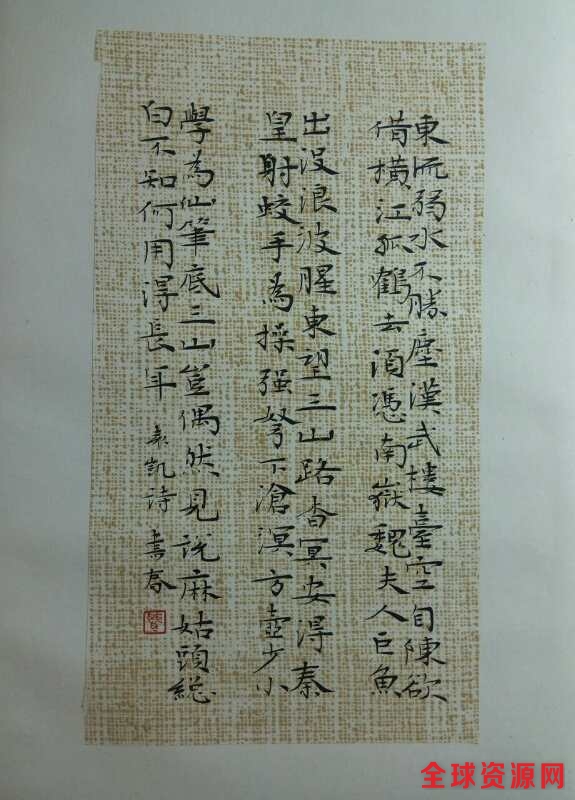 東流弱水不勝塵漢武樓臺空自陳欲
借橫江孤鶴去須憑南嶽魏夫人巨魚
出沒浪波腥東望三山路杳冥安得秦
皇射蛟手為操强弩下滄溟方壺少小
學為仙筆底三山豈偶然見説麻姑頭総
白不知何用得長年 袁凱詩
全球资源网